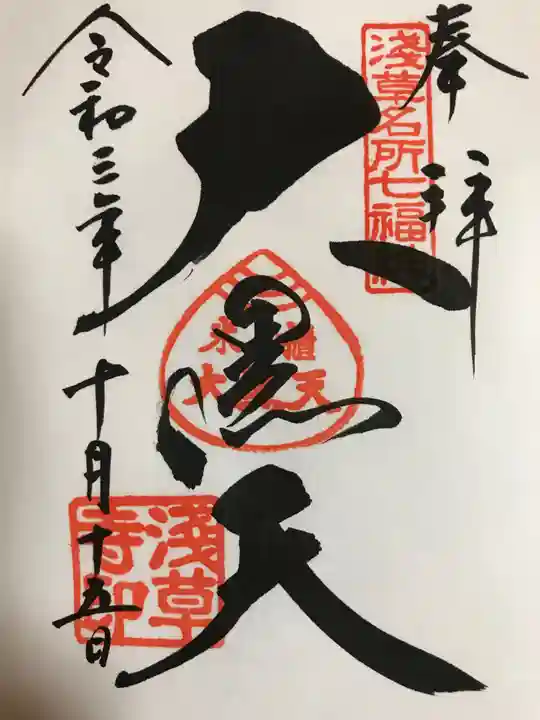 奉拝
淺草名所七福
大黒天
天
淺草寺印
令和三年十月十五日